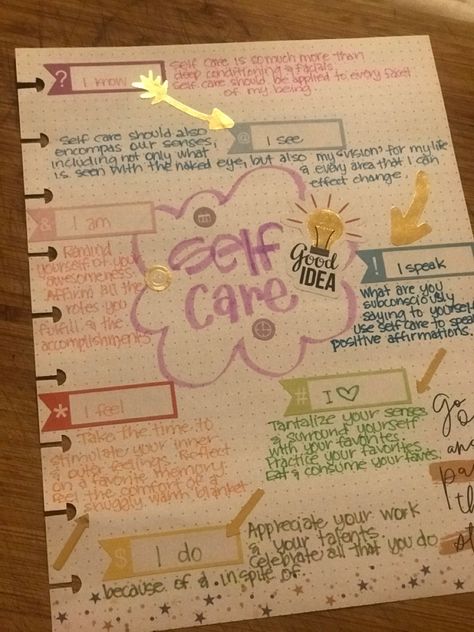 ? I know
Self care is so much more than
deep conditioning & facials
Self care should be applied to every facet
of my being
@ I see
Self care should also
encompas our senses,
including not only what
is seen with the naked eye, but also my "vision" for my life
& every area that I can
effect change.
& I am
Remind
yourself of your
awesomeness.
Affirm all the
roles you
fulfill & the
accomplishments.
Self
Care
Good
IDEA
! I speak
What are you
subconsciously
saying to yourself
use self care to speak
positive affirmations.
* I feel
Take the time to
stimulate your inner
& outer feelings. Reflect
on a favorite memory.
Feel the comfort of a
snuggly, warm blanket
# I
Tantalize your senses
& surround yourself
with your favorites.
Practice your favorites.
Eat & consume your faves.
Go
and
$ I do
Appreciate your work
& your talents.
Celebrate all that you do
because of & inspite of.